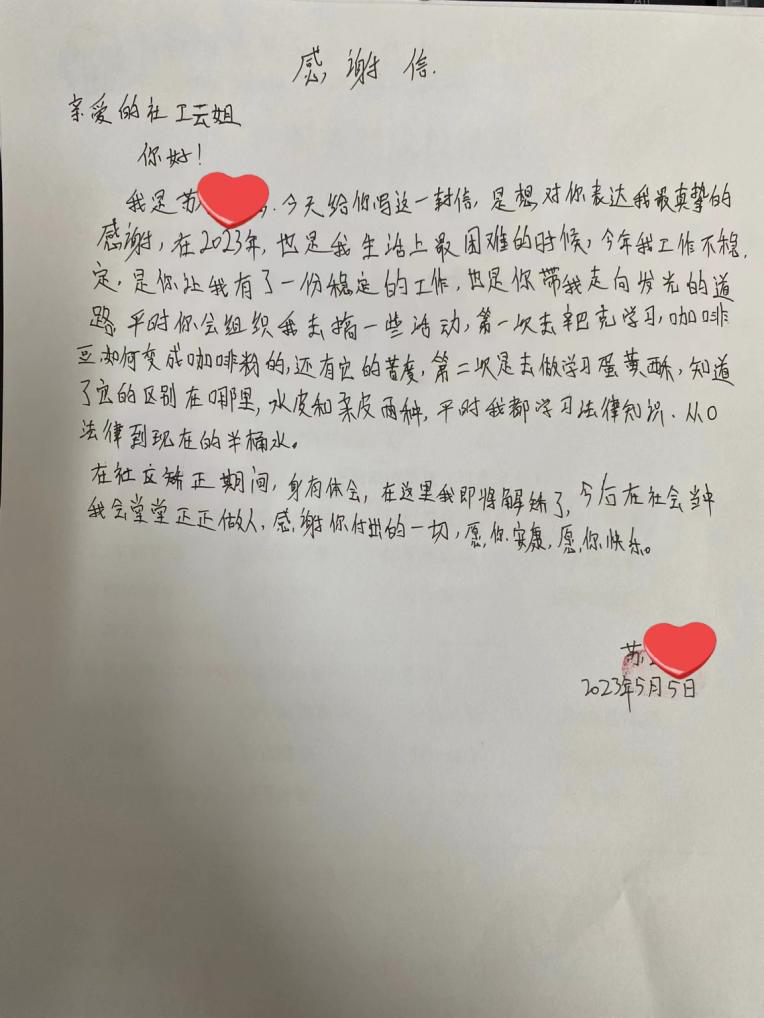 感谢信.
亲爱的社工云姐
你好!
我是苏 .今天给你写这一封信,是想对你表达我最真挚的
感谢,在2023年,也是我生活上最困难的时候,今年我工作不稳
定,是你让我有了一份稳定的工作,也是你带我走向发光的道
路,平时你会组织我去搞一些活动,第一次去星巴克学习,咖啡
豆如何变成咖啡粉的,还有它的苦度,第二次是去做学习蛋黄酥,知道
了它的区别在哪里,水皮和柔皮两种,平时我都学习法律知识.从0
法律到现在的半桶水。
在社区矫正期间,身有体会,在这里我即将解矫了,今后在社会当中
我会堂堂正正做人,感谢你付出的一切,愿你安康,愿你快乐。
苏
2023年5月5日